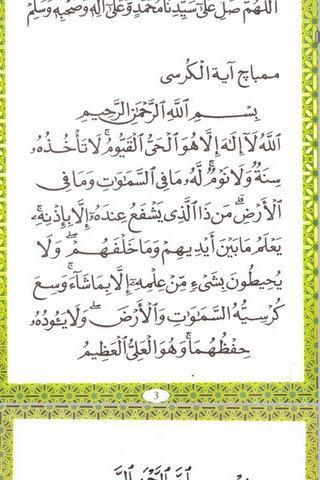 اَللّٰهُمَّ صَلِّ عَلَى سَيِّدِنَا مُحَمَّدٍ وَعَلَى اٰلِهِ وَصَحْبِهِ وَسَلِّمْ
ممباچ آية الكرسى
بِسْمِ اللهِ الرَّحْمٰنِ الرَّحِيمِ
اَللهُ لَا إِلٰهَ إِلَّا هُوَ الْحَيُّ الْقَيُّومُ ۚ لَا تَأْخُذُهُ
سِنَةٌ وَلَا نَوْمٌ ۚ لَهُ مَا فِي السَّمٰوَاتِ وَمَا فِي
الْأَرْضِ ۗ مَنْ ذَا الَّذِي يَشْفَعُ عِنْدَهُ إِلَّا بِإِذْنِهِ ۚ
يَعْلَمُ مَا بَيْنَ أَيْدِيهِمْ وَمَا خَلْفَهُمْ ۖ وَلَا
يُحِيطُونَ بِشَيْءٍ مِّنْ عِلْمِهِ إِلَّا بِمَا شَآءَ ۚ وَسِعَ
كُرْسِيُّهُ السَّمٰوَاتِ وَالْأَرْضَ ۖ وَلَا يَئُودُهُ
حِفْظُهُمَا ۚ وَهُوَ الْعَلِيُّ الْعَظِيمُ
3